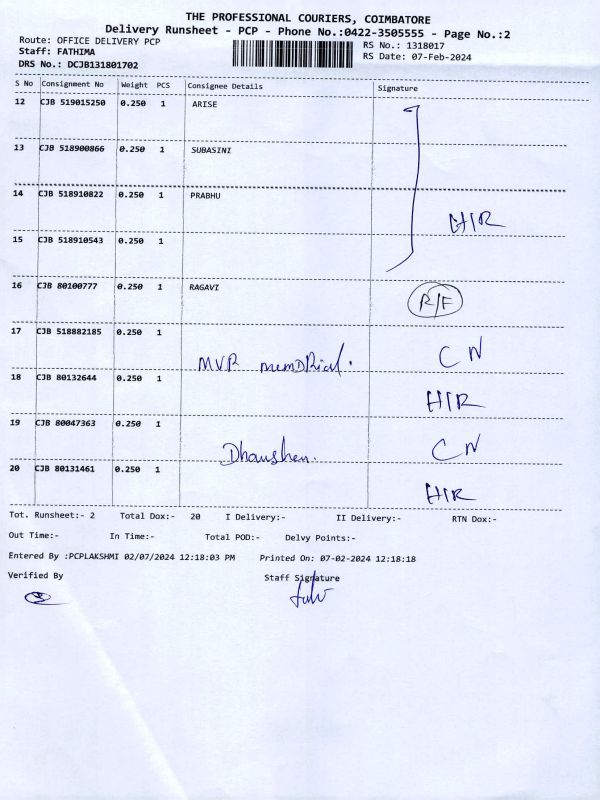 THE PROFESSIONAL COURIERS, COIMBATORE
Delivery Runsheet - PCP - Phone No.:0422-3505555 - Page No.:2
Route: OFFICE DELIVERY PCP RS No.: 1318017
Staff: FATHIMA RS Date: 07-Feb-2024
DRS No.: DCJB131801702
S No Consignment No Weight PCS Consignee Details Signature
12 CJB 519015250 0.250 1 ARISE
13 CJB 518900866 0.250 1 SUBASINI
14 CJB 518910822 0.250 1 PRABHU
H/R
15 CJB 518910543 0.250 1
16 CJB 80100777 0.250 1 RAGAVI R/F
17 CJB 518882185 0.250 1
MVR memDRial. CN
18 CJB 80132644 0.250 1
H/R
19 CJB 80047363 0.250 1
CN
20 CJB 80131461 0.250 1
H/R
Tot. Runsheet:- 2 Total Dox:- 20 I Delivery:- II Delivery:- RTN Dox:-
Out Time:- In Time:- Total POD:- Delvy Points:-
Entered By :PCPLAKSHMI 02/07/2024 12:18:03 PM Printed On: 07-02-2024 12:18:18
Verified By Staff Signature